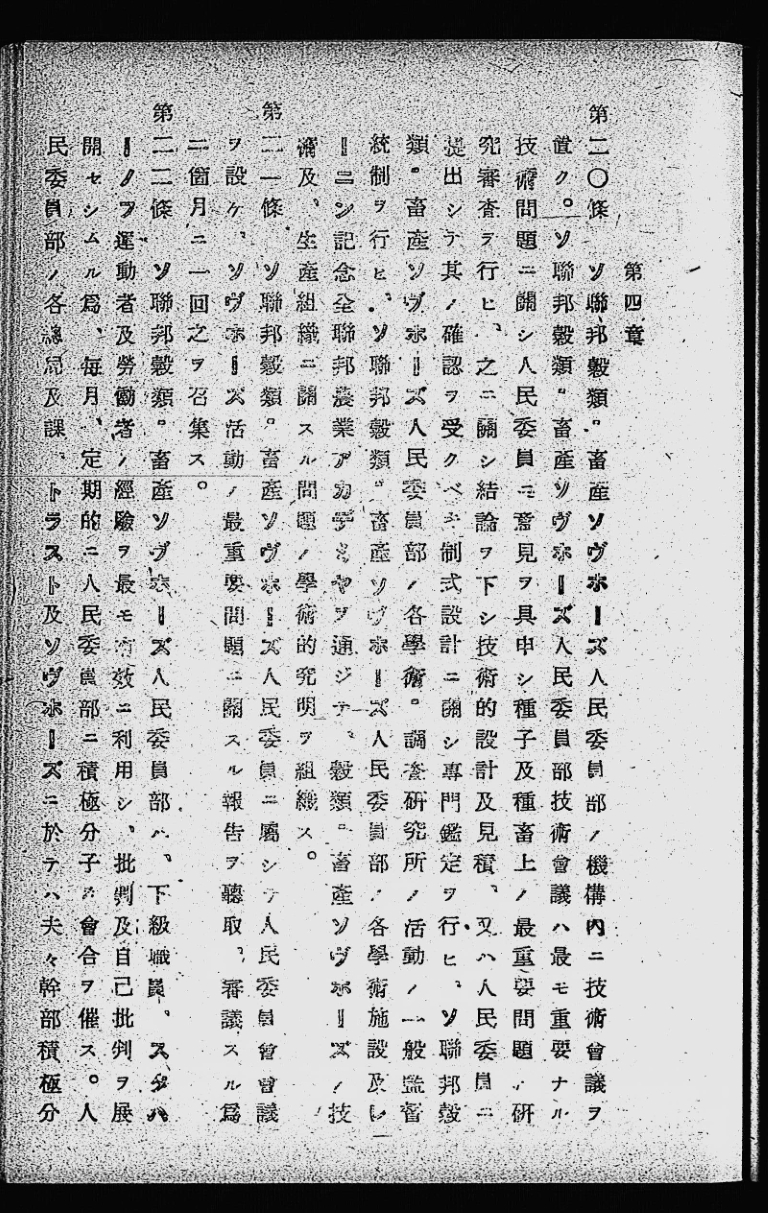 第四章
第二〇條　ソ聯邦穀類。畜產ソヴホーズ人民委員部ノ機構內ニ技術會議ヲ
置ク。ソ聯邦穀類。畜產ソヴホーズ人民委員部技術會議ハ最モ重要ナル
技術問題ニ關シ人民委員ニ意見ヲ具申シ種子及種畜上ノ最重要問題ノ硏
究審査ヲ行ヒ、之ニ關シ結論ヲ下シ技術的設計及見積、又ハ人民委員ニ
提出シテ其ノ確認ヲ受クベキ制式設計ニ關シ專門鑑定ヲ行ヒ、ソ聯邦穀
類。畜產ソヴホーズ人民委員部ノ各學術。調査硏究所ノ活動ノ一般監督
統制ヲ行ヒ、ソ聯邦穀類。畜產ソヴホーズ人民委員部ノ各學術施設及レ
ーニン記念全聯邦農業アカデミヤヲ通ジテ、穀類。畜產ソヴホーズノ技
術及、生產組織ニ關スル問題ノ學術的究明ヲ組織ス。
第二一條　ソ聯邦穀類。畜產ソヴホーズ人民委員ニ屬シテ人民委員會會議
ヲ設ケ、ソヴホーズ活動ノ最重要問題ニ關スル報告ヲ聽取、審議スル爲
二箇月ニ一回之ヲ召集ス。
第二二條　ソ聯邦穀類。畜產ソヴホーズ人民委員部ハ、下級職員、スタハ
ーノヴ運動者及勞働者ノ經驗ヲ最モ有效ニ利用シ、批判及自己批判ヲ展
開セシムル爲、每月、定期的ニ人民委員部ニ積極分子ノ會合ヲ催ス。人
民委員部ノ各總局及課、トラスト及ソヴホーズニ於テハ夫々幹部積極分